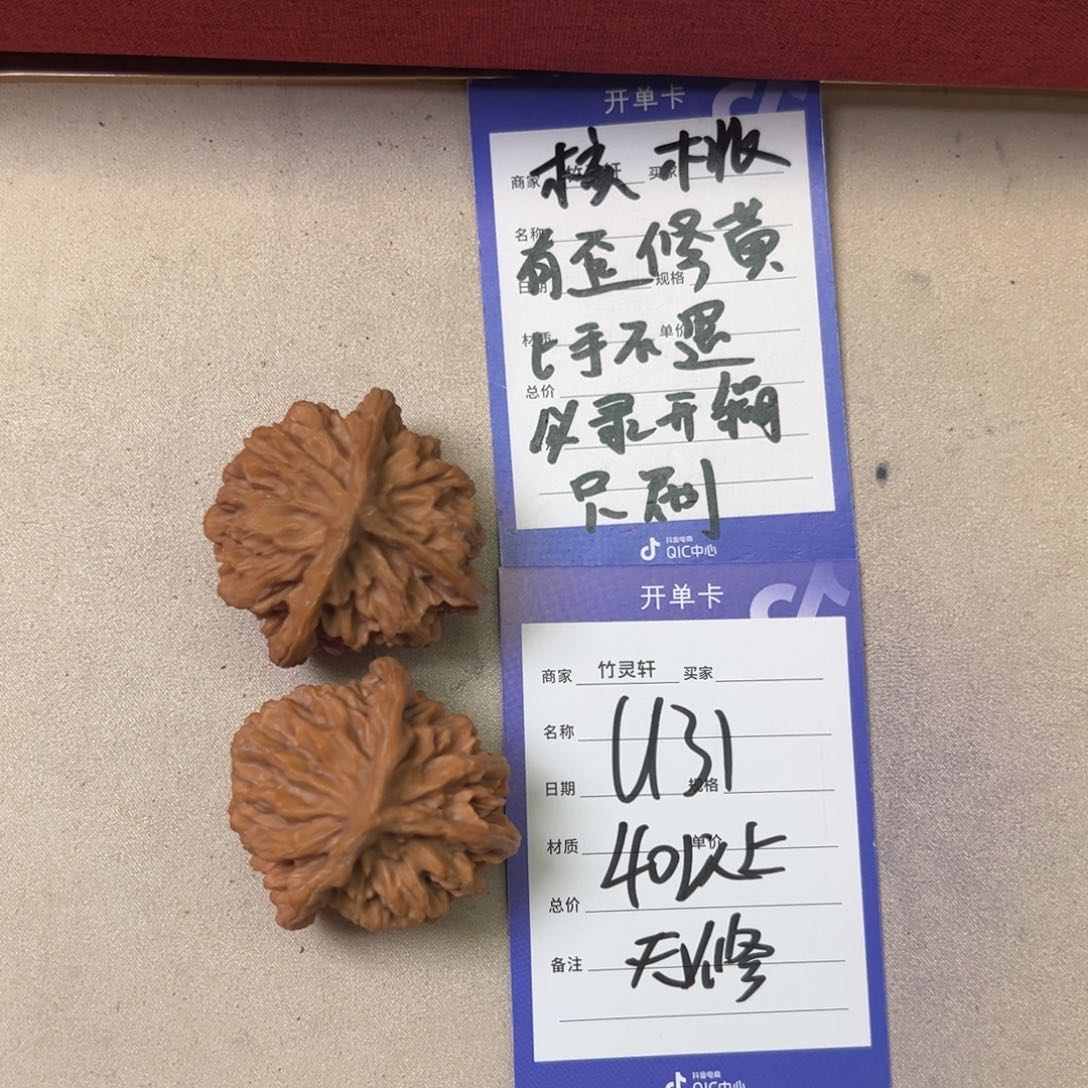 开单卡
核桃
商家 竹灵轩 买家
名称
有歪修黄
日期 规格
材质 单价
上手不退
总价
必录开箱
只刷
抖音电商
QIC中心
开单卡
商家 竹灵轩 买家
名称
U31
日期 规格
材质 单价
40以上
总价
备注 无修
抖音电商
QIC中心